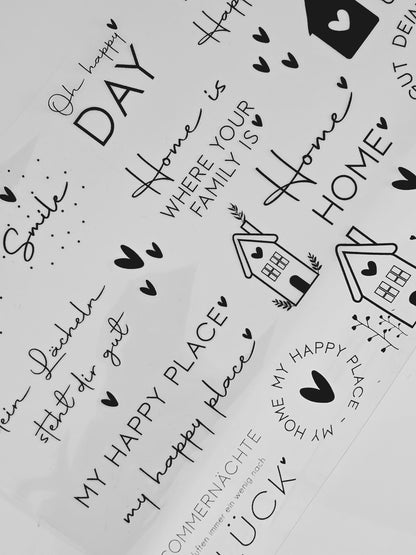 Oh happy
DAY
Happy
Home is
WHERE YOUR
FAMILY IS
Home
HOME
GUT DEIN
Smile
Lächeln
steht dir gut
MY HAPPY PLACE
my happy place
MY HAPPY PLACE - MY HOME
SOMMERNÄCHTE
duften immer ein wenig nach